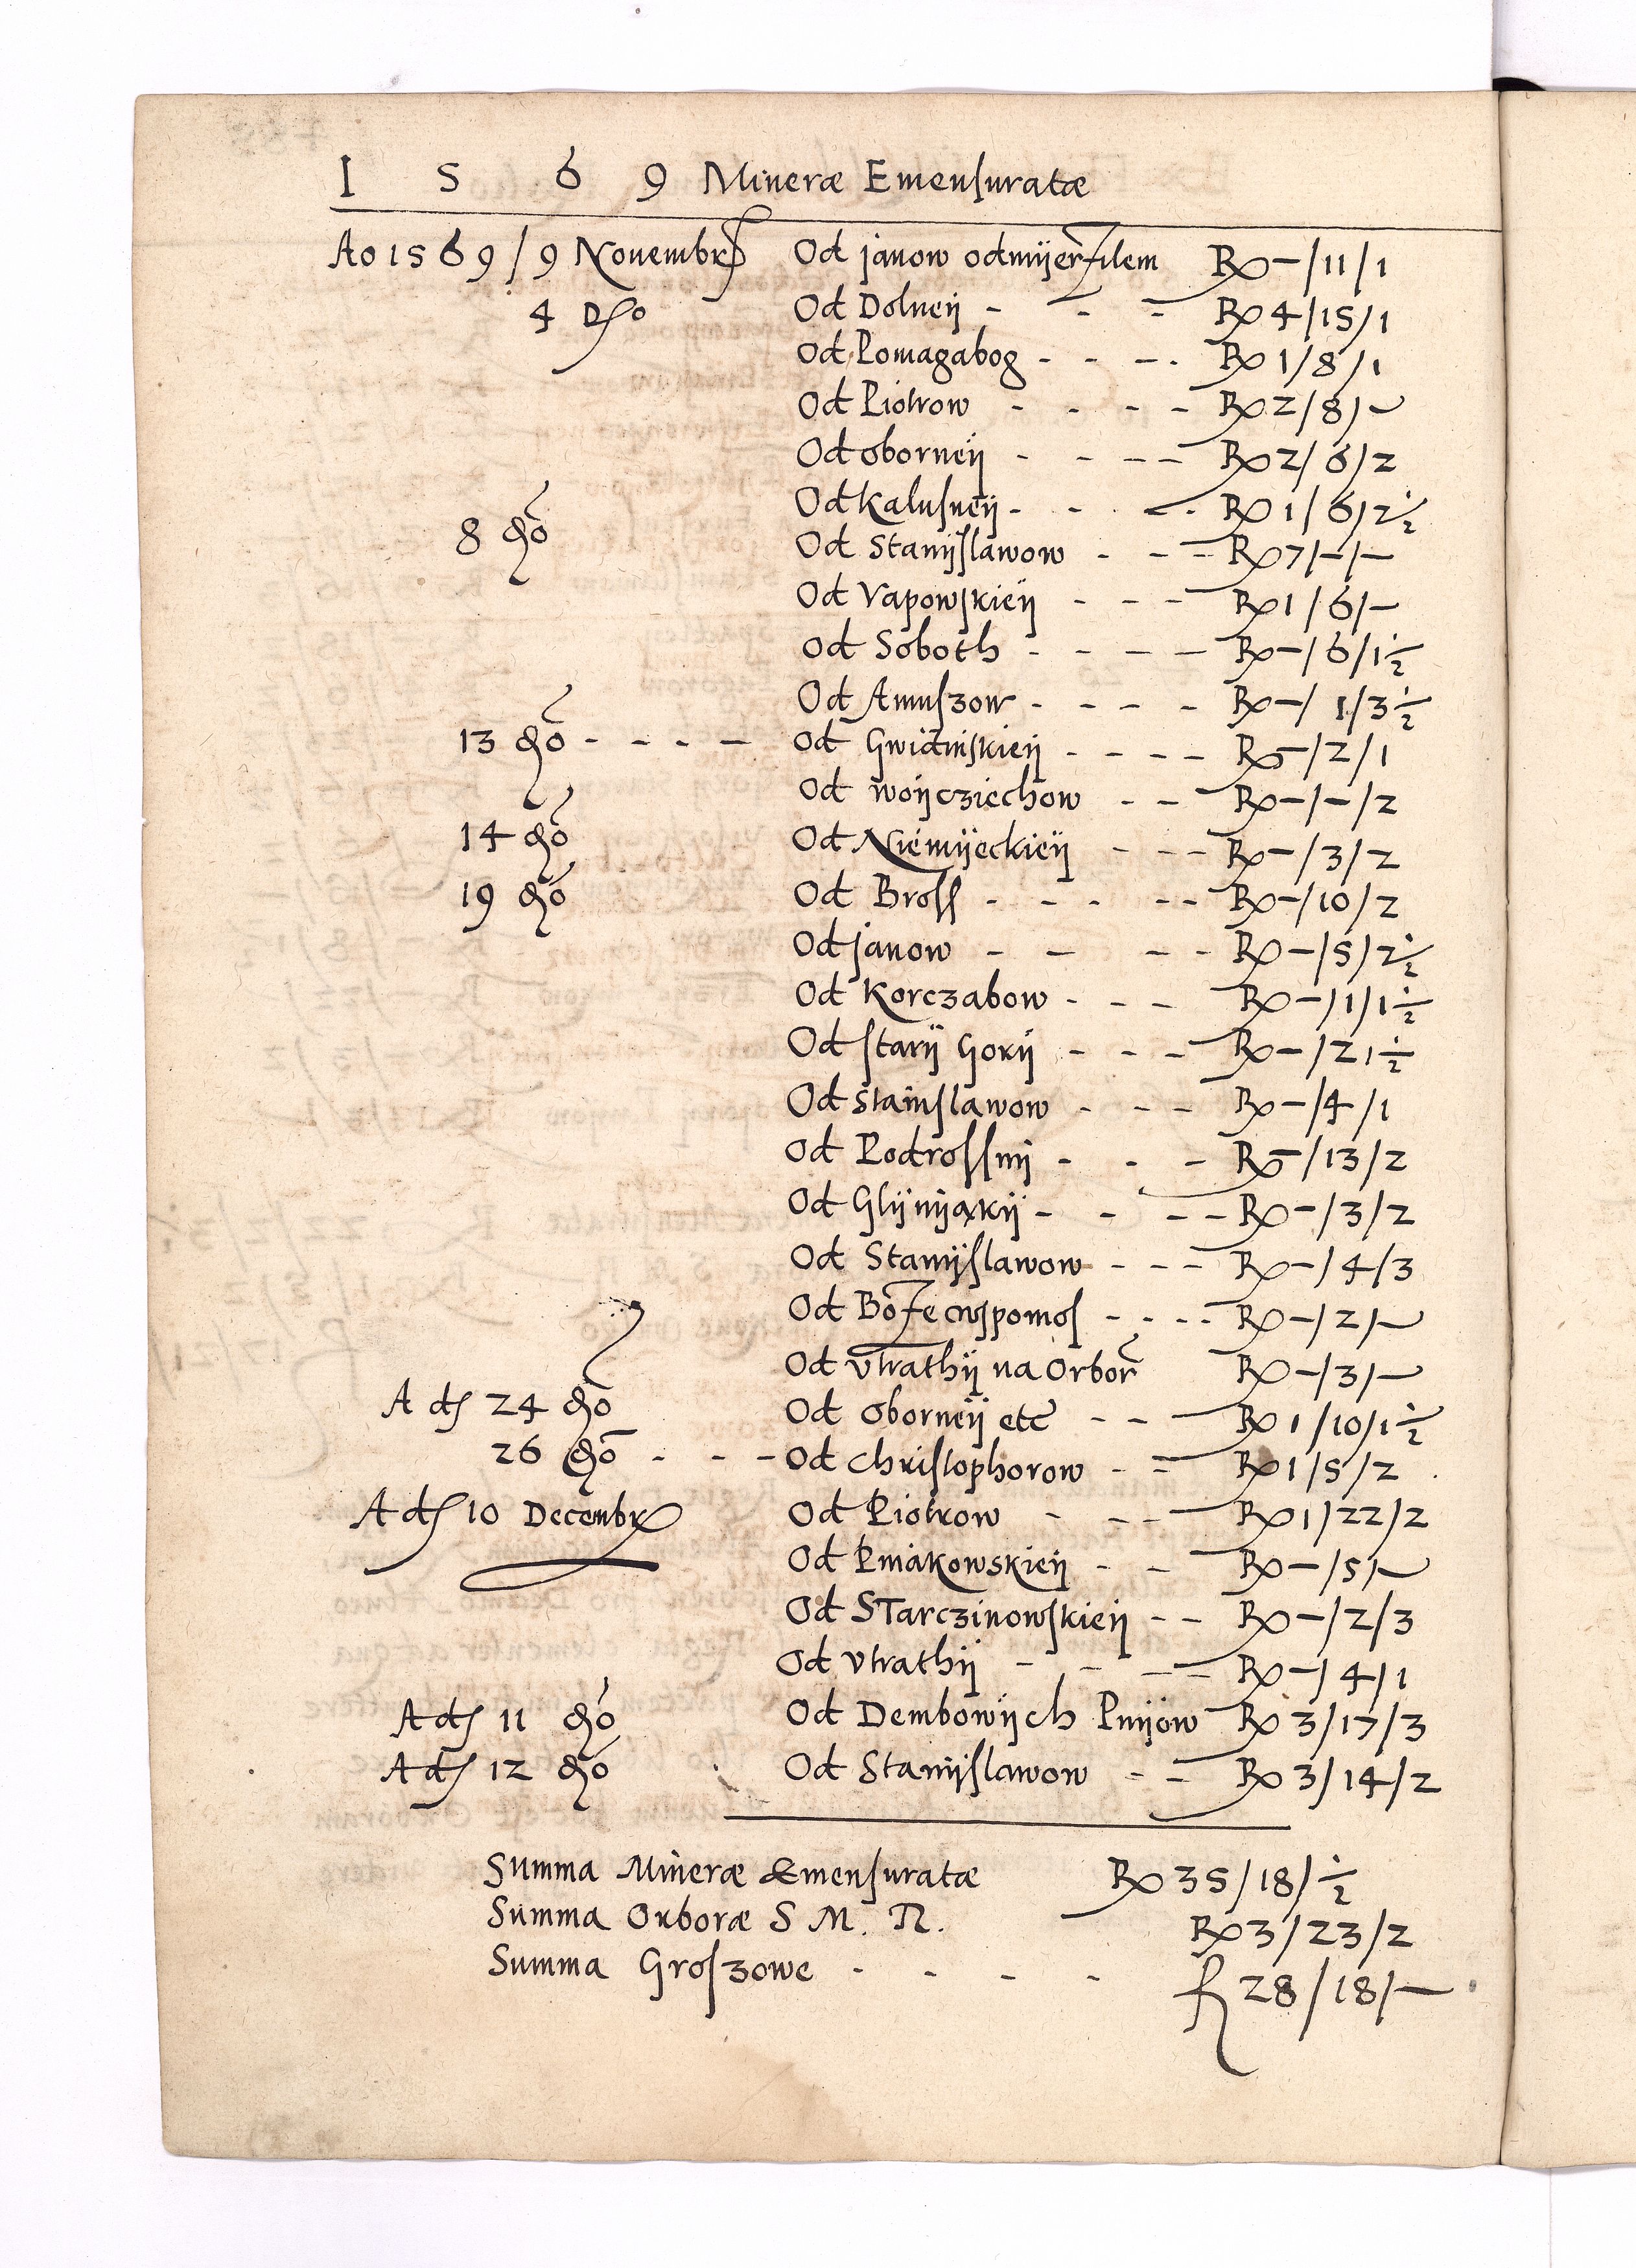 1 5 6 9 Mineræ Emensuratæ
Ao 1569 / 9 Nouembr Od janow odmijerzilem Rx – / 11 / 1
4 Dto Od Dolneij - - - Rx 4 / 15 / 1
Od Pomagabog - - - - Rx 1 / 8 / 1
Od Piotrow - - - - Rx 2 / 8 / –
Od oborneij - - - - Rx 2 / 6 / 2
Od Kalusneij - - - Rx 1 / 6 / 2 ½
8 dto Od Stanijslawow - - - Rx 7 / – / –
Od Vapowskieij - - - Rx 1 / 6 / –
Od Soboth - - - - Rx – / 6 / 1 ½
Od Anuszow - - - - Rx – / 1 / 3 ½
13 dto - - - - Od Gwidinskieij - - - - Rx – / 2 / 1
Od woijcziechow - - Rx – / – / 2
14 dto Od Niemijeckieij - - - Rx – / 3 / 2
19 dto Od Bross - - - - - Rx – / 10 / 2
Od janow - - - - Rx – / 5 / 2 ½
Od Korczabow - - - Rx – / 1 / 1 ½
Od starij Gorij - - - Rx – / 2 1 ½
Od Stainslawow - - - Rx – / 4 / 1
Od Podrossnij - - - Rx – / 13 / 2
Od Glijnijąkij - - - - Rx – / 3 / 2
Od Stanijslawow - - - Rx – / 4 / 3
Od Boże - - - - Rx – / 2 / –
Od vtrathij na Orbor Rx – / 3 / –
A ds 24 dto Od oborneij etc - - Rx 1 / 10 / 1 ½
26 dto - - - Od Christophorow - - Rx 1 / 5 / 2
A ds 10 Decembr Od Piotrow - - - Rx 1 / 22 / 2
Od Pniakowskieij - - Rx – / 5 / –
Od STarczinowskieij - - Rx – / 2 / 3
Od vtrathij - - - - Rx – / 4 / 1
A ds 11 dto Od Dembowijch Pnijow Rx 3 / 17 / 3
A ds 12 dto Od Stanijslawow - - Rx 3 / 14 / 2
Summa Mineræ Emensuratæ Rx 35 / 18 / ½
Summa Orboræ S M. R. Rx 3 / 23 / 2
Summa Groszowe - - - - fl 28 / 18 / –